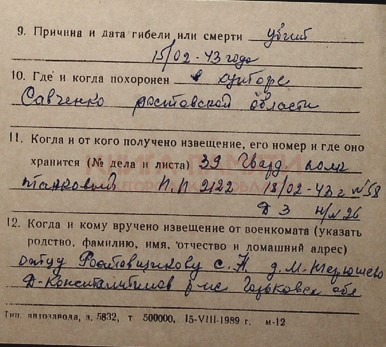 9. Причина и дата гибели или смерти убит
15/02-43 года
10. Где и когда похоронен в хуторе
Савченко Ростовской области
11. Когда и от кого получено извещение, его номер и где оно
хранится (№ дела и листа) 39 Гвард. полк
танковый П.П 2122 18/02-43 г №58
Д 3 н/л 26
12. Когда и кому вручено извещение от военкомата (указать
родство, фамилию, имя, отчество и домашний адрес)
отцу Ростовщикову С. Н д. М.
Д-Константинов р-не Горьковск обл
Тип. автозавода, з. 5832, т. 500000. 15-VIII-1989 г. м-12